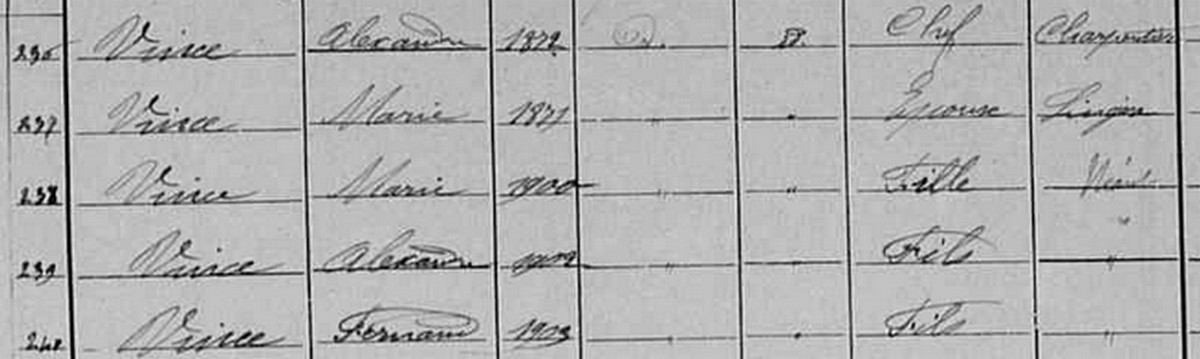 236 Vince Alexandre 1872 Chef Charpentier
237 Vince Marie 1871 " " Epouse Lingère
238 Vince Marie 1900 " " Fille Néant
"
239 Vince Alexandre " " Fils "
240 Vince Fernand 1903 " " Fils "